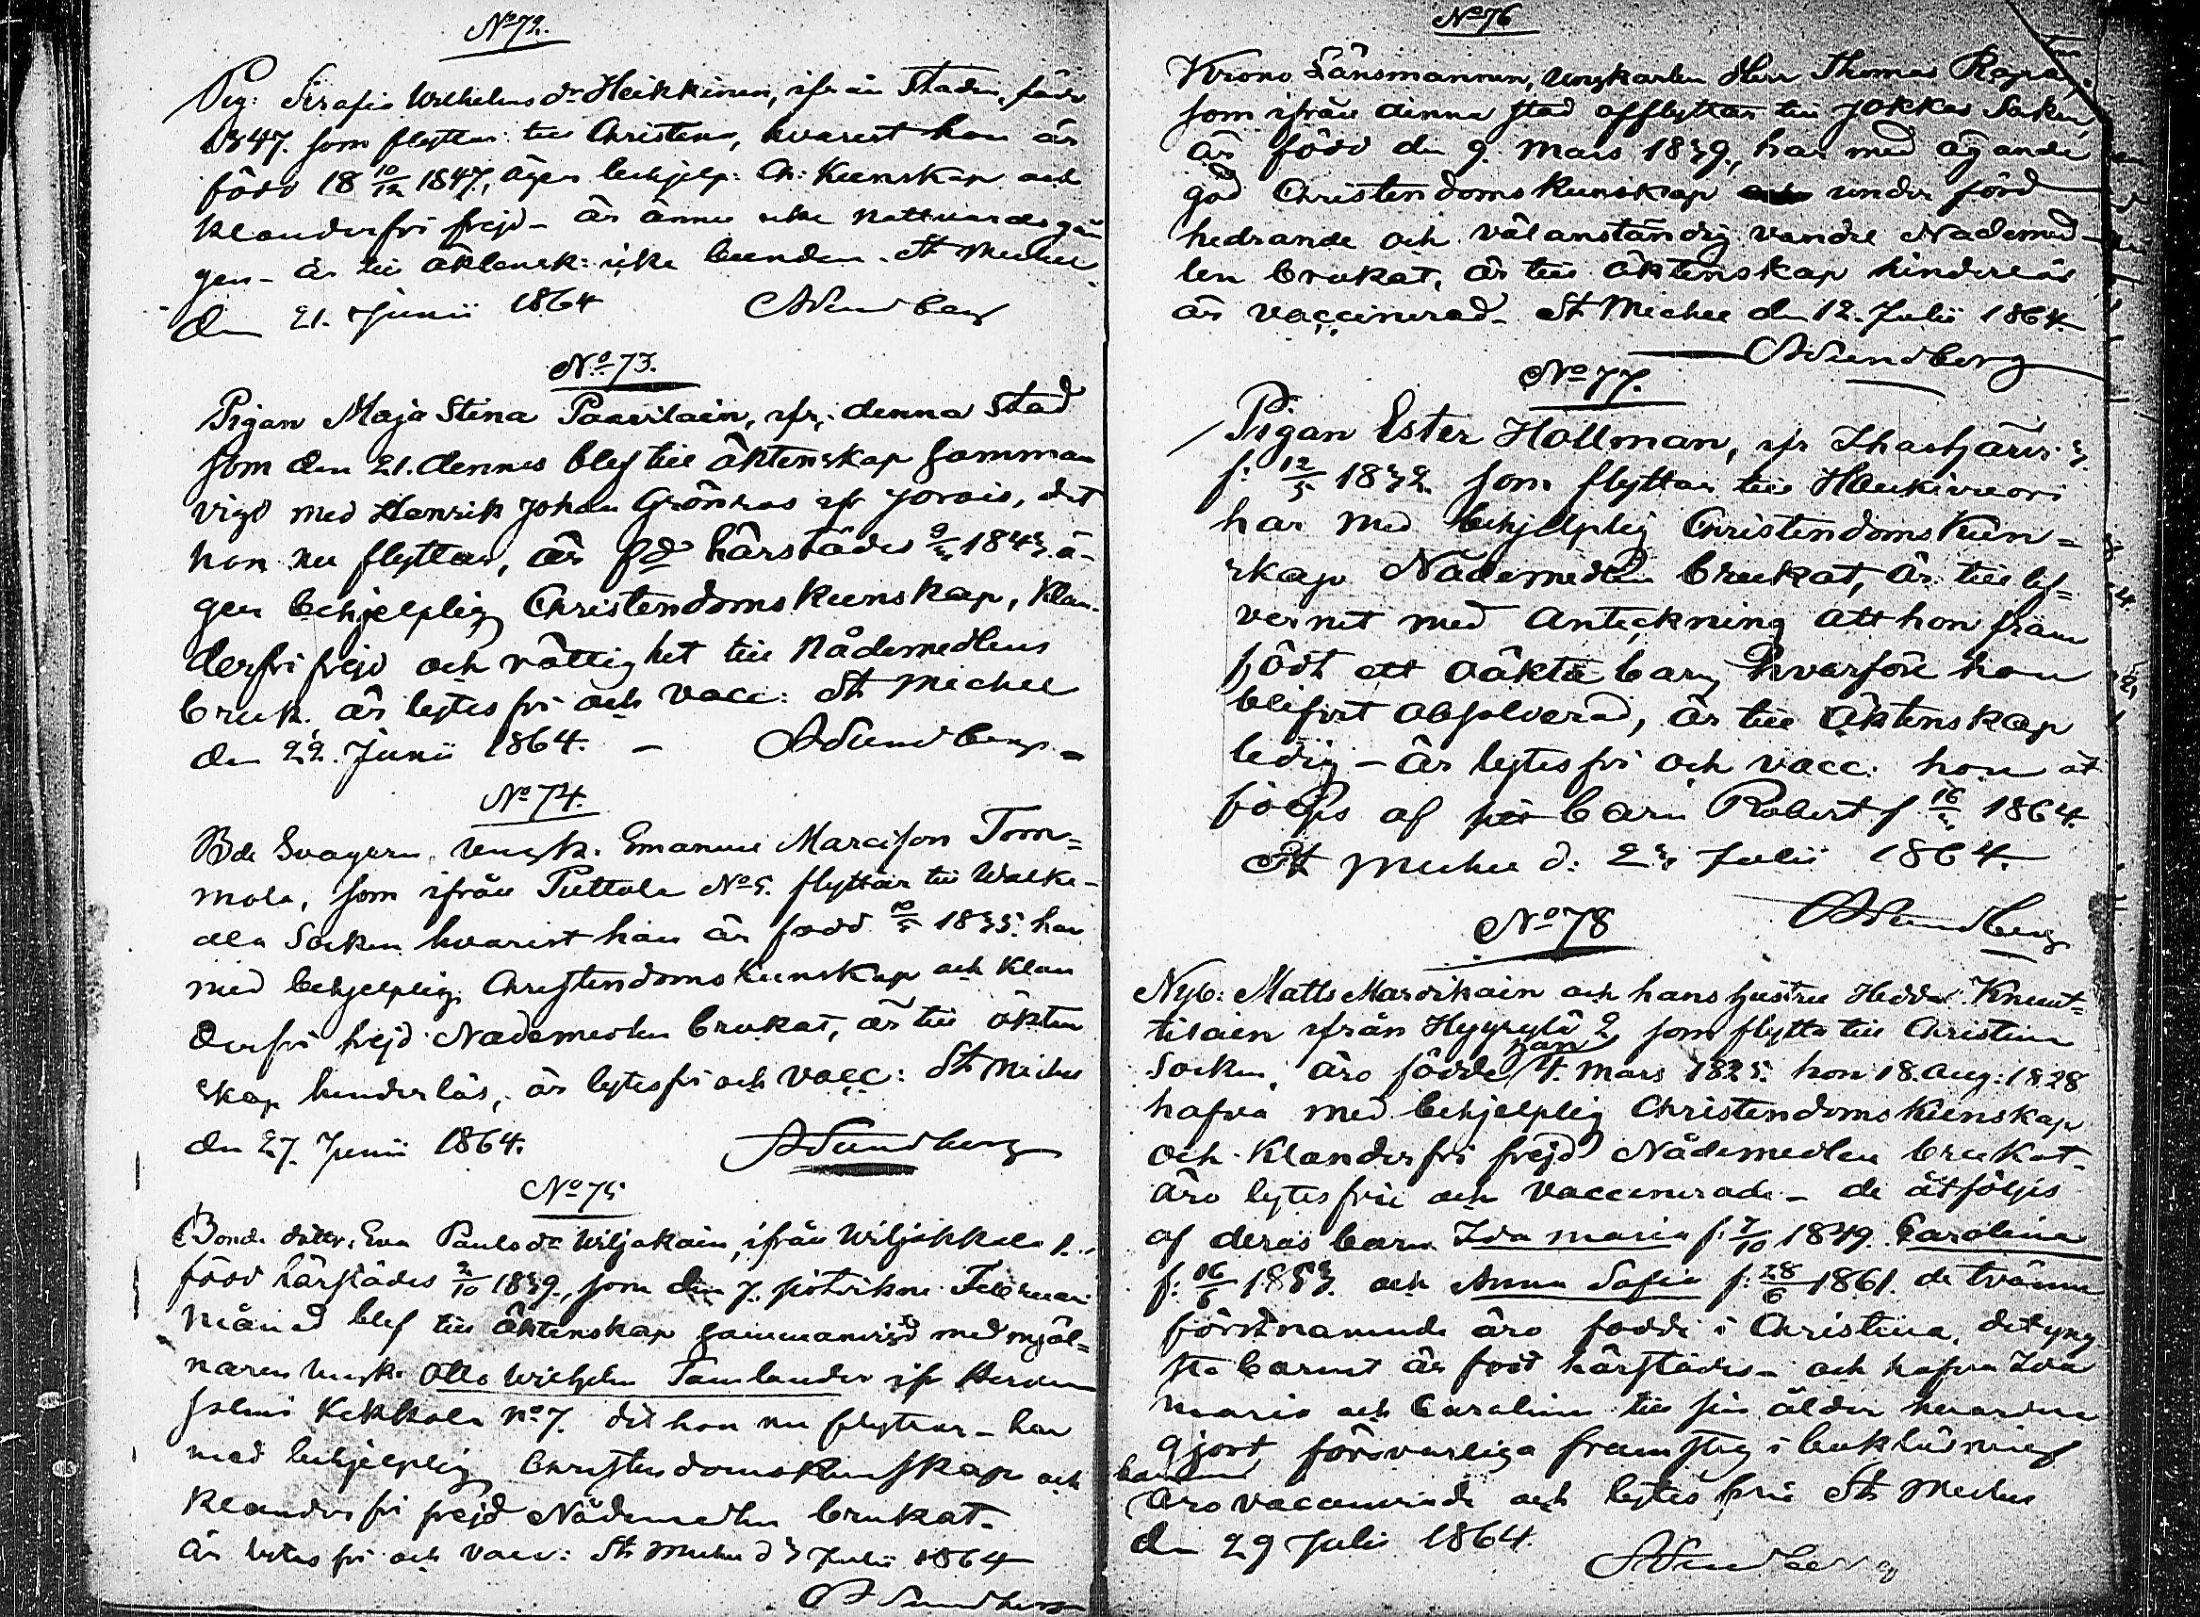 No 72.
Pig: Serafia Wilhelms dr Heikkinen, ifrån Staden, född
1847. som flyttar till Christina, hvarest hon är
född 18 10/12 1847, äger behjelp: Ch: Kunskap och
klanderfri frejd - är ännu icke nattvardsgån
gen - är till äktensk: icke bunden. St Michel
den 21. Junii 1864 ASundberg
No 73.
Pigan Maja Stina Paasilain, ifr: denna Stad
som den 21. dennes blef till äktenskap samman
vigd med Henrik Johan Grönroos ifr Jorois, dit
hon nu flyttar, är född härstädes 1843. ä-
ger behjelplig Christendomskunskap, klan-
derfri frejd och rättighet till Nådemedlens
bruk. är lytesfri och vacc: St Michel
den 22. Junii 1864. - ASundberg
No 74.
Bde Svagern, ungk. Emanuel Marcisson Tom=
mola, som ifrån Puttola No 5. flyttar till Walke-
ala Socken hvarest han är född 1835. har
med behjelplig Christendomskunskap och klan
derfri frejd Nådemedlen brukat, är till äkten
skap hinderlös, är lytesfri och vacc: St Michel
den 27. Junii 1864. ASundberg
No 75
Bonde dottr. Eva Paulsdr Wiljakain, ifrån Wiljakkala 1.
född härstädes 2/10 1839., som den 7. sistvikne Februari
månad blef till äktenskap sammanvigd med mjöl=
naren ungk. Otto Wilhelm Tamlander ifr
salmi Kekkola No 7. dit hon nu flyttar - har
med behjelplig Christendomskunskap och
klanderfri frejd Nådemedlen brukat.
Är lytesfri och vacc: St Michel d 3 Julii 1864
ASundberg
No 76
Krono Länsmannen, ungkarlen Herr Thomas
som ifrån denna stad afflyttar till Jokkas Socken,
är född den 9. Mars 1839., har med ägande
god Christendomskunskap under förd
hedrande och välanständig vandel Nådemed-
len brukat, är till äktenskap hinderlös
är vaccinerad - St Michel den 12. Julii 1864.
ASundberg
No 77.
Pigan Ester Hollman, ifr Ihastjärvi 3
f: 12/5 1832 som flyttar till Haukivuori
har med behjelplig Christendomskun=
skap Nådemedlen brukat, är till lef=
vernet med anteckning att hon fram
födt ett oäkta barn hvarföre hon
blifvit absolverad, är till äktenskap
ledig - är lytesfri och vacc: hon åt
följes af barn Robert f 1864.
St Michel d: 23 Julii 1864.
ASundberg
No 78
Nyb: Matts Mardikain och hans hustru Hedda Knuut=
tilain ifrån Hyyrylä 2 som flytta till Christina
Socken, äro födde han 4. Mars 1825. hon 18. Aug: 1828
hafva med behjelplig Christendomskunskap
och klanderfri frejd Nådemedlen brukat-
äro lytesfrie och vaccinerade - de åtföljes
af deras barn Ida Maria f: 7/10 1849. Carolina
f: 16/6 1853. och Anna Sofia f: 28/6 1861. de tvänne
förstnämnde äro födde i Christina, det yng
sta barnet är född härstädes - och hafva Ida
Maria och Carolina till sin ålder
gjort försvarliga framsteg i bokläsning
barnen
äro vaccinerade och lytesfrie St Michel
den 29 Julii 1864. ASundberg